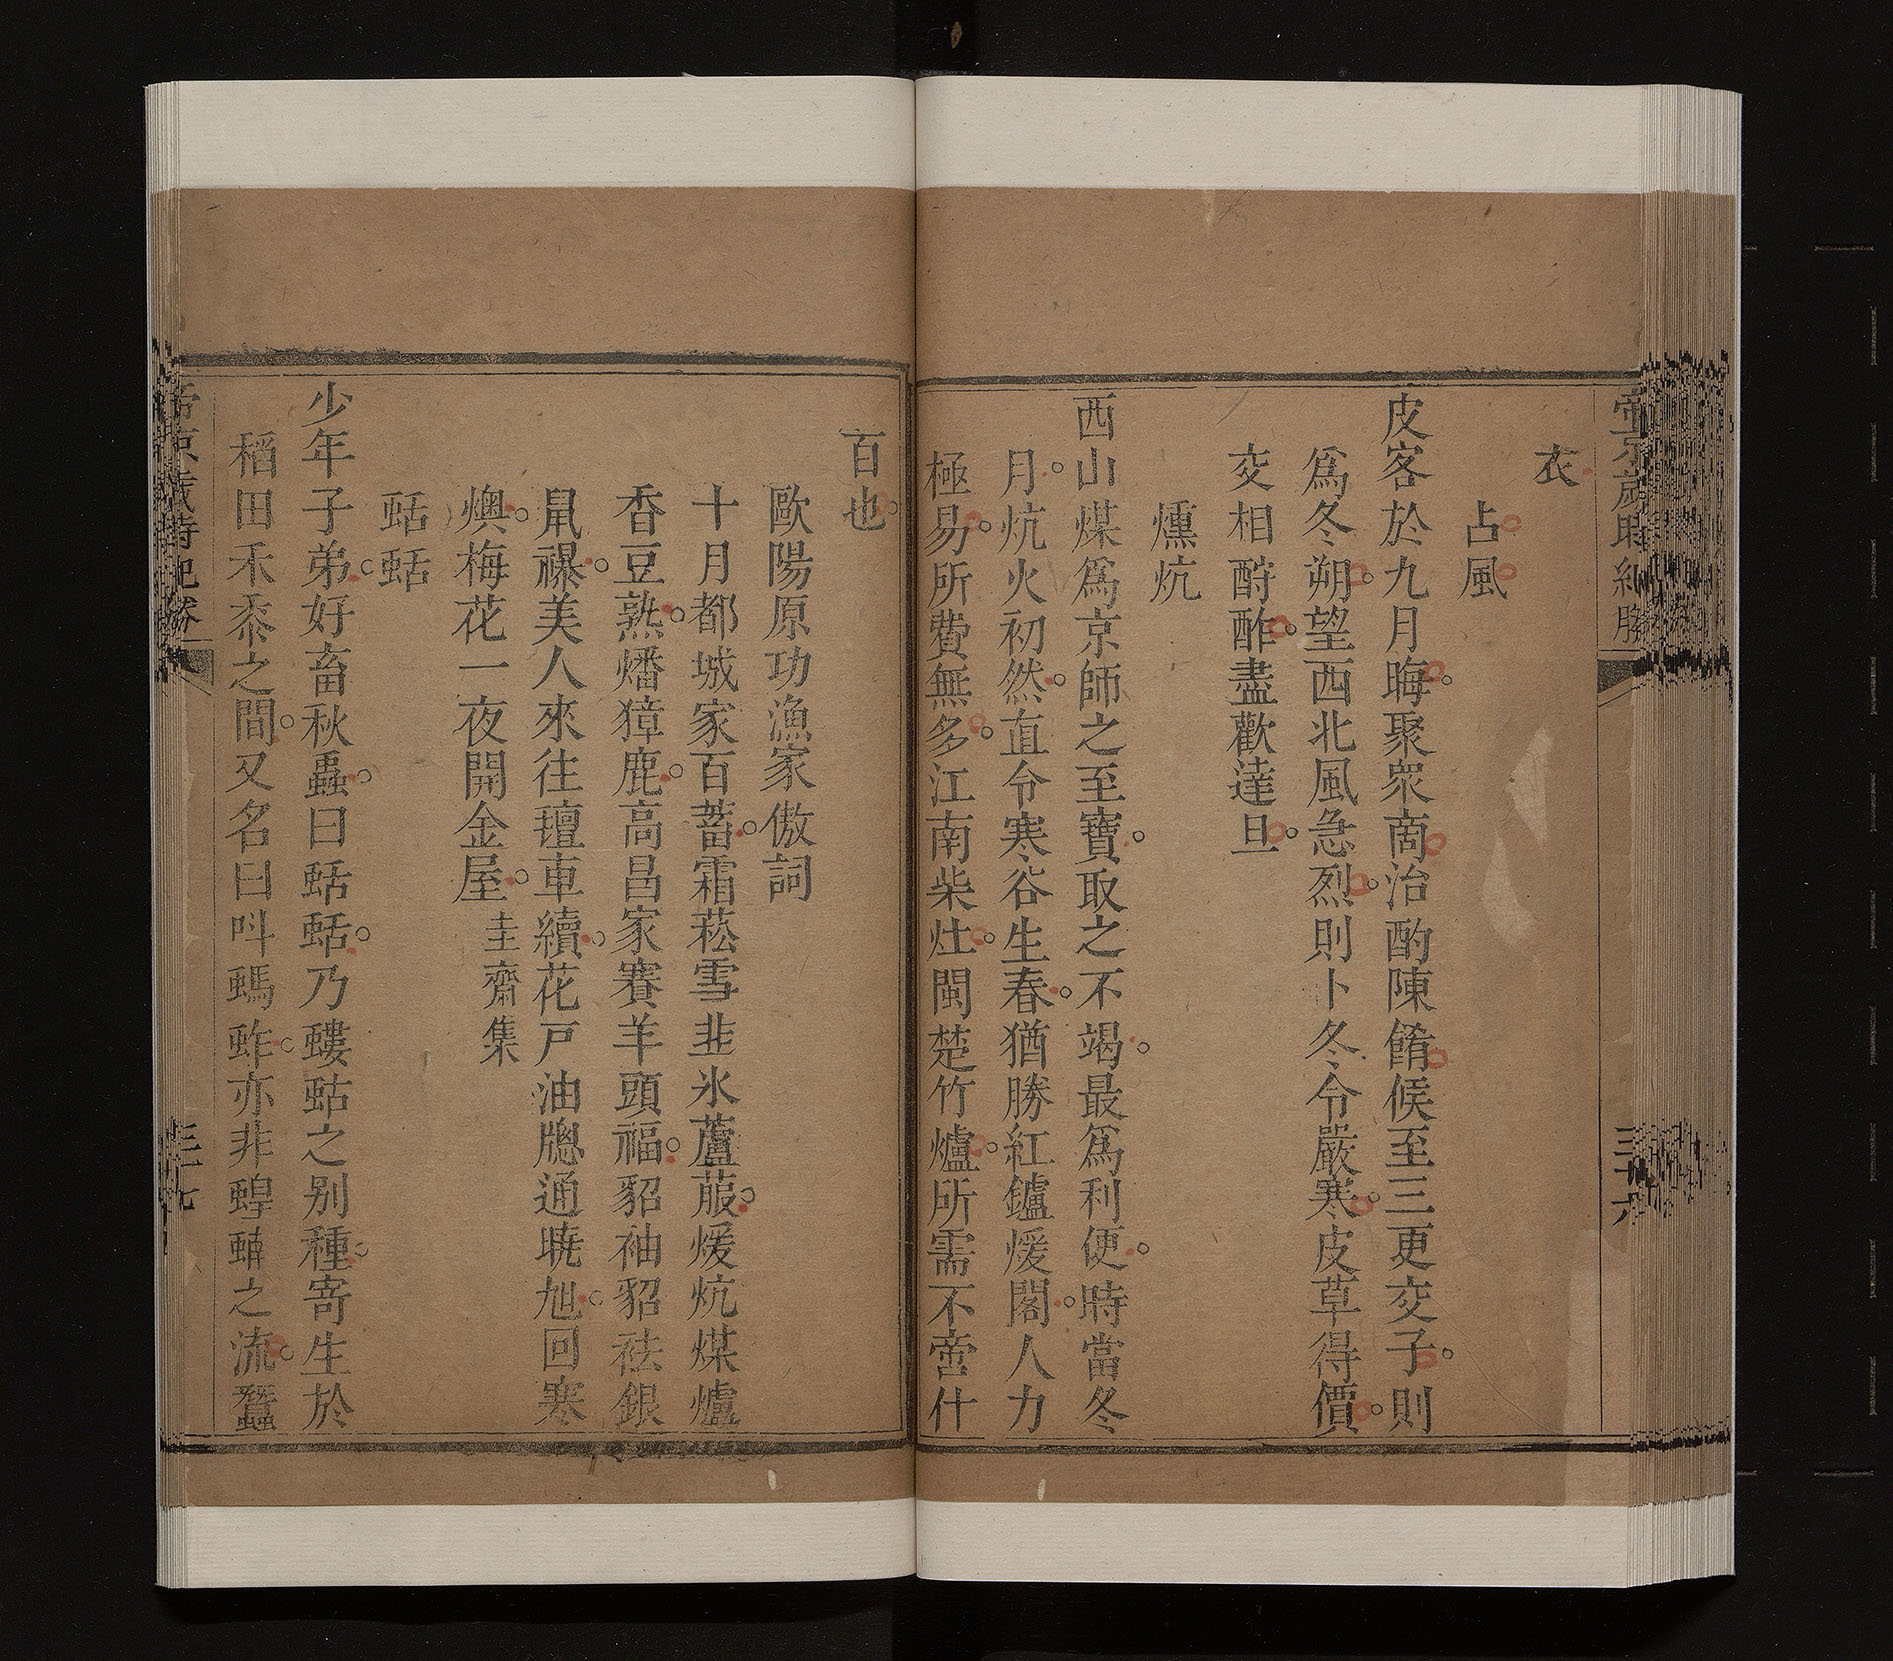 衣
占風
皮客於九月晦聚衆商治酌陳餚候至三更交子則
爲冬朔望西北風急烈則卜冬令嚴寒皮草得價
交相酧酢盡歡達旦
燻炕
西山煤爲京師之至寶取之不竭最爲利便時當冬
月炕火初然直令寒谷生春猶勝紅鑪煖閣人力
極易所費無多江南柴灶閩楚竹爐所需不啻什
百也
歐陽原功漁家傲詞
十月都城家百蓄霜菘雪韭氷蘆菔煖炕煤爐
香豆熟燔獐鹿高昌家賽羊頭福貂袖貂袪銀
鼠襮美人來往氊車續花戸油牕通曉旭回寒
燠梅花一夜開金屋圭齋集
蛄蛞
少年子弟好畜秋蟲曰蛞蛞乃螻蛄之别種寄生於
稻田禾黍之間又名曰呌螞蚱亦非蝗蝻之流蠶
帝京歲時紀勝
三十七